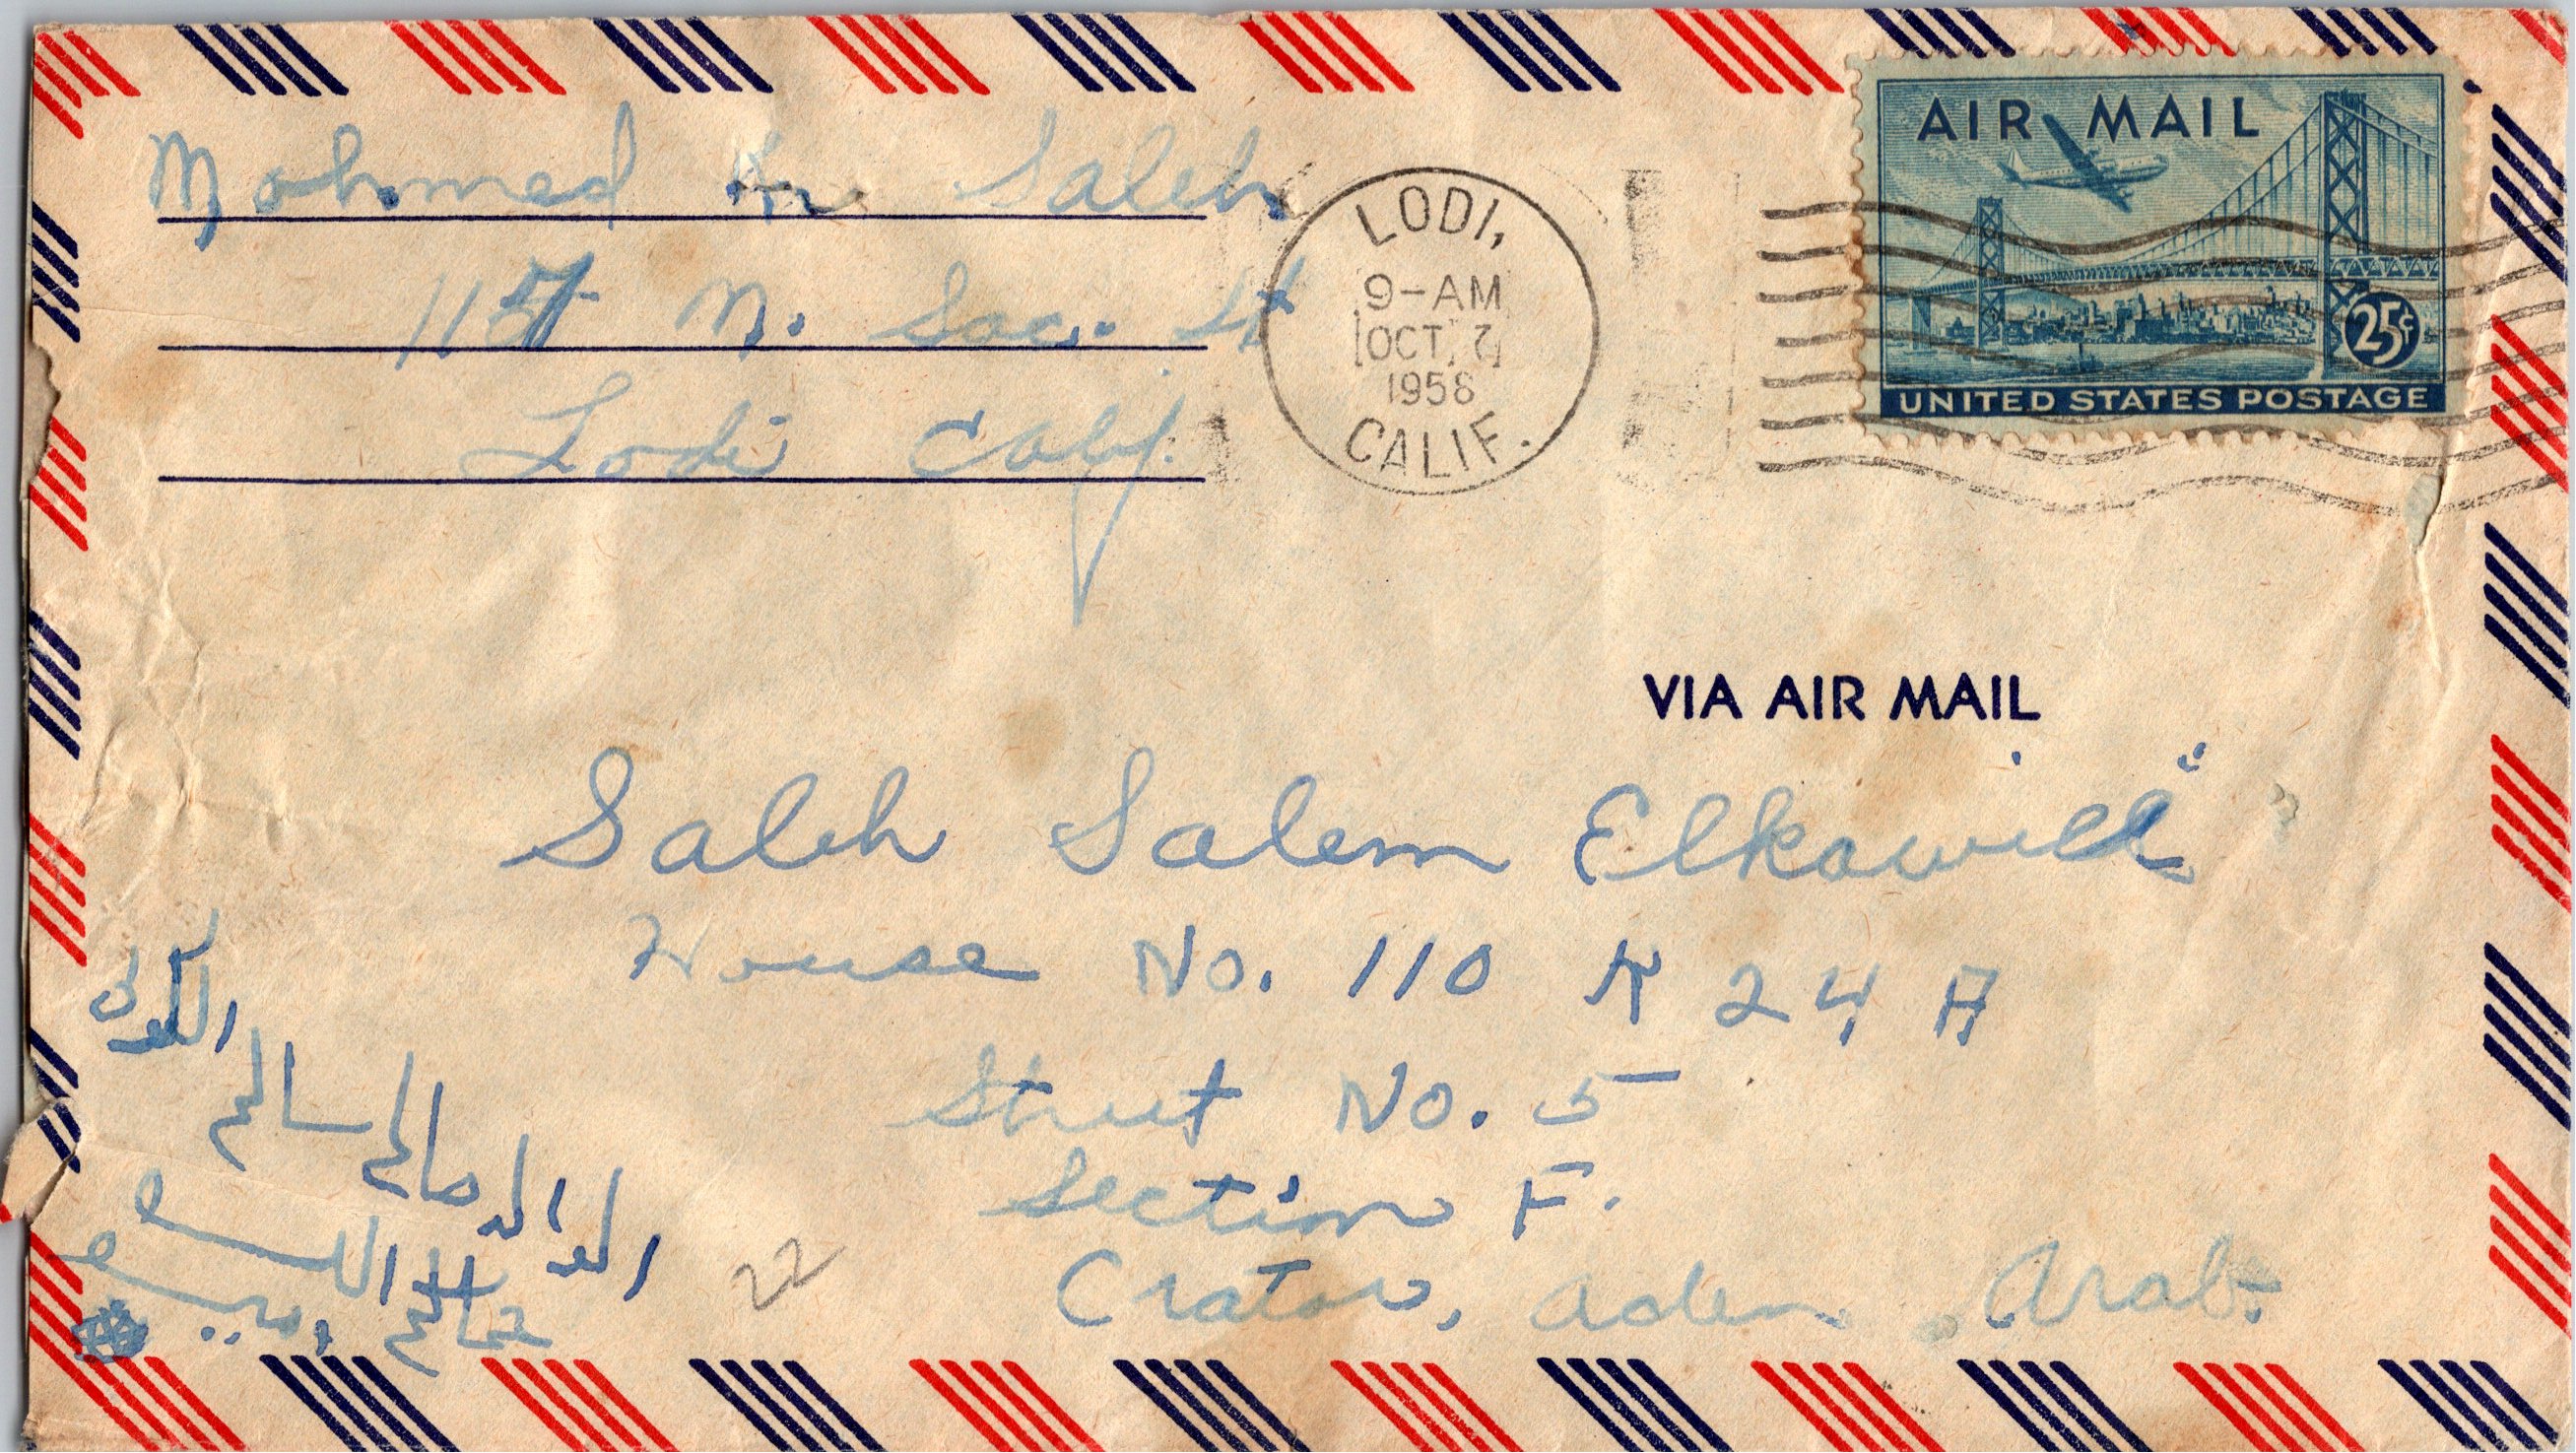 Mohmed Kn Saleh
115 N. Sac. St
Lodi Calif.
LODI,
9-AM
OCT 7
1958
CALIF.
AIR MAIL
25¢
UNITED STATES POSTAGE
VIA AIR MAIL
Saleh Salem Elkawill
House No. 110 K 24 A
Street No. 5
Section F.
Crator, Aden Arab.
الوالد صالح سالم
22